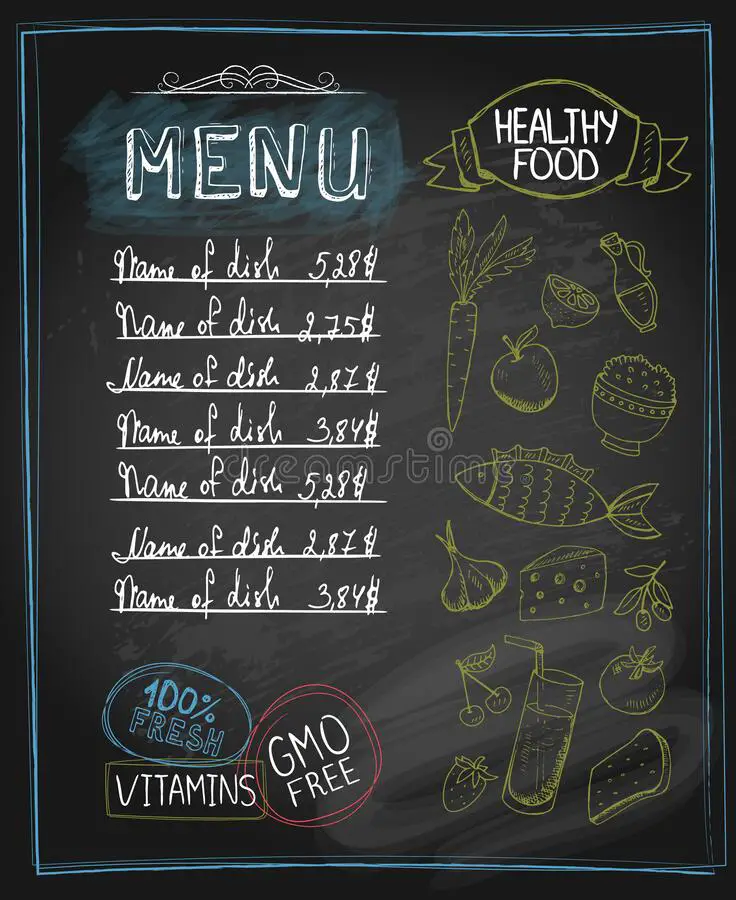 MENU
Name of dish 5,28$
Name of dish 2,75$
Name of dish 2,87$
Name of dish 3,84$
Name of dish 5,28$
Name of dish 2,87$
Name of dish 3,84$
HEALTHY
FOOD
dreamstime.com
100%
FRESH
VITAMINS
GMO
FREE